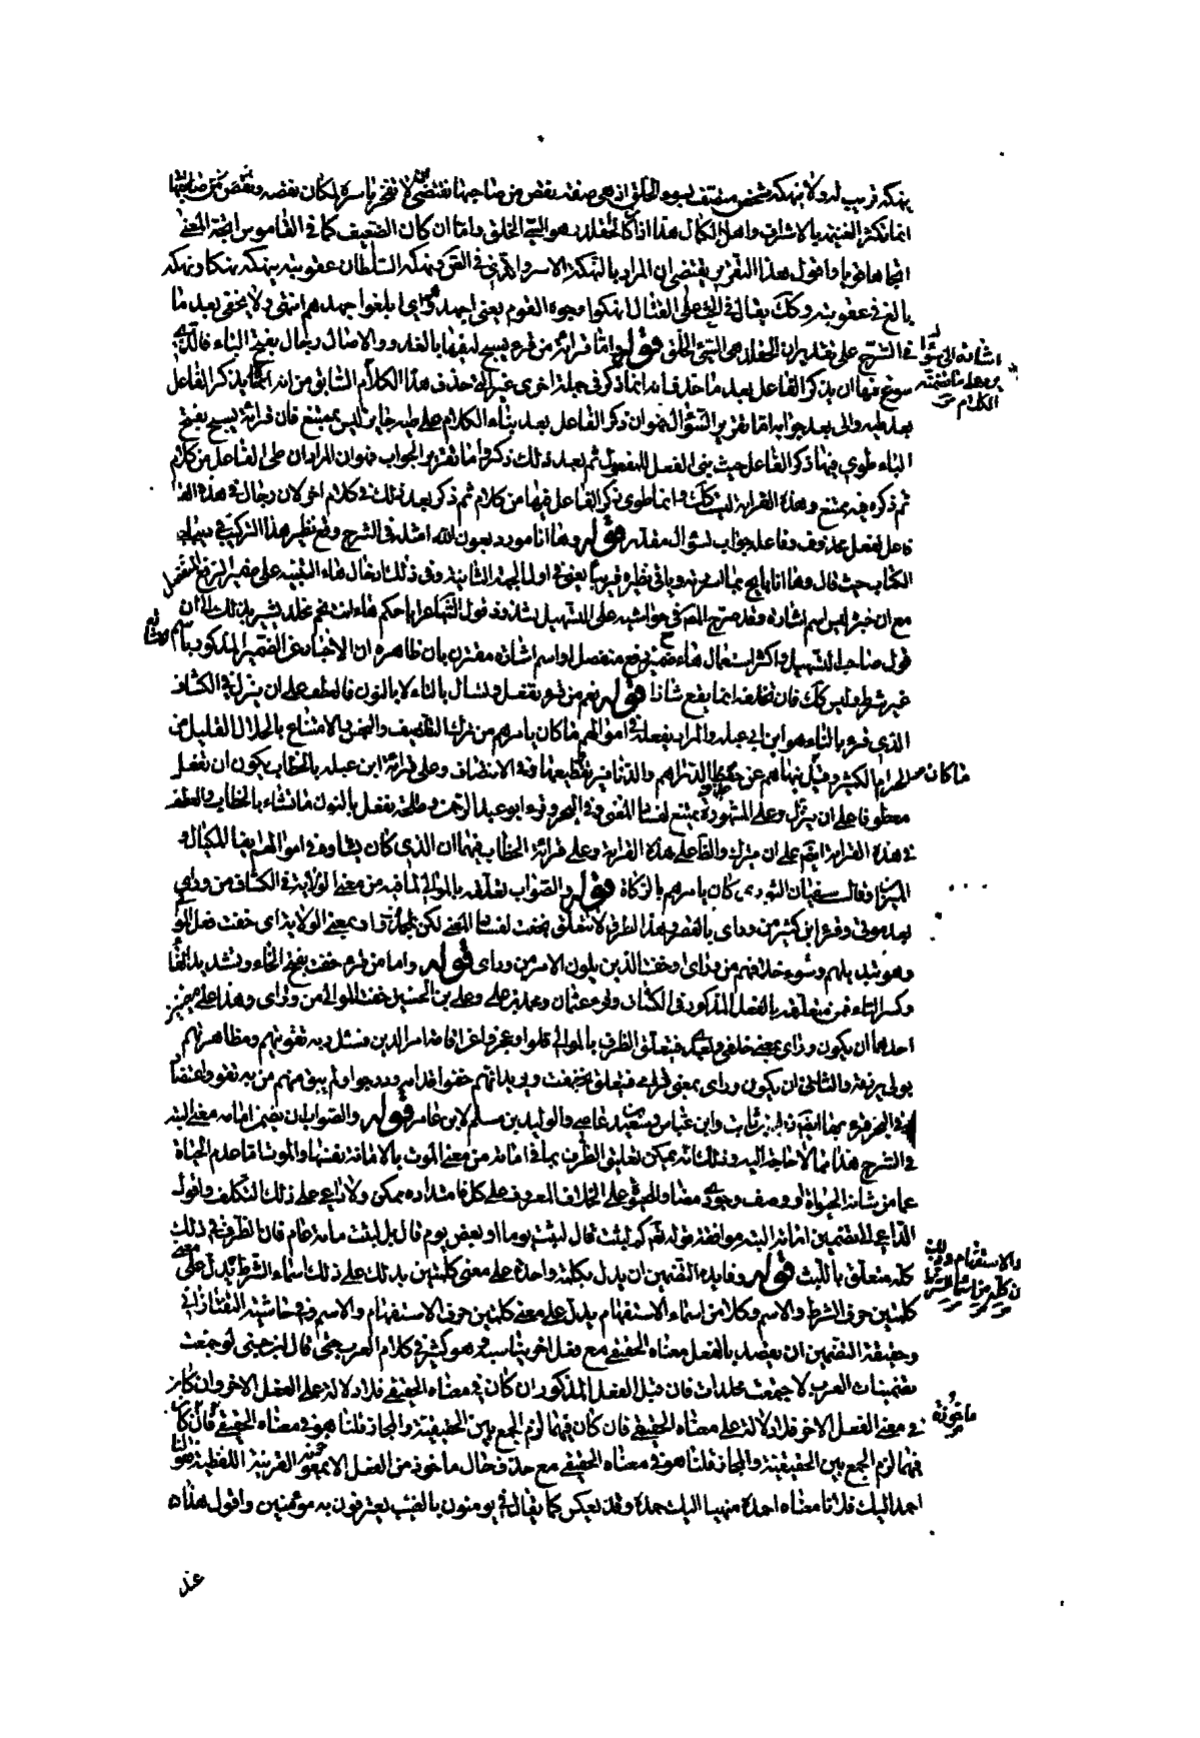 ينهكه قريب له ولا ينهكه شخص متصف بسوء الخلق اذ هي صفة نقص من صاحبها تقتضي لا تفخر باسره لمكان نقصه
انما تكثر الغيبة بالاشراف واهل الكمال هذا اذا كان الحقلد هو السيئ الخلق واما ان كان الضعيف كما في القاموس اتجه المعنى
اتجاها قويا واقول هذا التقرير يقتضي ان المراد بالنهكة الاسر والذي في القاموس نهكه السلطان عقوبة ينهكه نهكا ونهكة
بالغ في عقوبته وكذلك يقال في الحث على القتال انهكوا وجوه القوم يعني اجهدوهم اي ابلغوا جهدهم انتهى ولا يخفى بعد ما
في الشرح على تقدير ان الحقلد هي السيئ الخلق قوله واما قراءة من قرء يسبح له فيها بالغدو والاصال رجال بفتح الباء فالذي
سوغ فيها ان يذكر الفاعل بعد ما حذف انه انما ذكر في جملة اخرى غير التي حذف هذا الكلام السابق من انه يذكر الفاعل
بعد طيه والى بعد جوابه اما تقرير السؤال فهو ان ذكر الفاعل بعد بناء الكلام على طيه جايز ليس بممتنع فان قراءة يسبح بفتح
الباء طوي فيها ذكر الفاعل حيث بنى الفعل للمفعول ثم بعد ذلك ذكر واما تقرير الجواب فهو ان المراد ان طي الفاعل من كلام
ثم ذكره فيه يمتنع وهذه القراءة ليست كذلك وانما طوي ذكر الفاعل فيها من كلام ثم ذكر بعد ذلك في كلام اخر لان رجال في هذه القراءة
فاعل لفعل محذوف وفاعله جواب لسؤال مقدر قوله وها انا مورد بعون الله امثلة في الشرح وقع نظير هذا التركيب في ديباجة
الكتاب حيث قال وها انا بايح بما اسررته ويأتي نظيره قريبا يعني في اول الجهة الثانية وفي ذلك ادخال هاء التنبيه على ضمير الرفع المنفصل
مع ان خبره ليس اسم اشارة وقد صرح المصنف في حواشيه على التسهيل بشذوذ قول الشاعر ايا حكم هاانت نجم مخلد يشير بذلك الى ان
قول صاحب التسهيل واكثر استعمال هاء مع ضمير رفع منفصل او اسم اشارة مقترن بان ظاهره ان الاخبار عن الضمير المذكور باسم
غير شرط وليس كذلك فان تخلفه انما يقع شاذا قوله نعم من قرء تفعل وتشاء بالتاء لا بالنون فالعطف على ان يترك في الكشاف
الذي قرء بالتاء هو ابن ابي عبلة والمراد بفعله في اموالهم ما كان يامرهم من ترك التطفيف والبخس والامتناع بالحلال القليل من
الحرام الكثير وقيل ينهاهم عن حذف الدراهم والدنانير وتقطيعها وفي الانتصاف وعلى قراءة ابن عبلة بالخطاب يكون ان تفعل
معطوفا على ان يترك وعلى المشهورة يمتنع لفساد المعنى وفي البحر وقرء ابو عبد الرحمن وطلحة نفعل بالنون ما تشاء بالخطاب والعطف
في هذه القراءة ايضا على ان يترك والفاعل هذه القراءة وعلى قراءة الخطاب فيهما ان الذي كان يشاؤه في اموالهم ايفا المكيال و
الميزان وقال سفيان الثوري كان يامرهم بالزكاة قوله والصواب تعلقه بالموالي لما فيه من معنى الولاية في الكشاف من ورائي
بعد موتي وقرء ابن كثير من وراي بالقصر وهذا الظرف لا يتعلق بخفت لفساد المعنى لكن بمحذوف او بمعنى الولاية اي خفت فعل الموالي
وهو تبديلهم وسوء خلافهم من وراي او خفت الذين يلون الامر من وراي قوله واما من قرء خفت بفتح الخاء وتشديد الفاء
وكسر التاء فمن متعلقة بالفعل المذكور في الكشاف وقرء عثمان ومحمد بن علي وعلي بن الحسين خفت الموالي من وراي وهذا على معنيين
احدهما ان يكون وراي بمعنى خلفي وبعدي فيتعلق الظرف بالموالي اي قلوا وعجزوا عن اقامة امر الدين فسئل ربه تقويتهم ومظاهرتهم
بولي يرزقه والثاني ان يكون وراي بمعنى قدامي فيتعلق بخفت ويريد انهم خفوا قدامه ودرجوا ولم يبق منهم من به تقو واعتضاد
وفي البحر قرء بها ايضا زيد بن ثابت وابن عباس وسعيد بن العاصي والوليد بن مسلم لابن عامر قوله والصواب ان يضمن اماته معنى البثه
في الشرح هذا مما لا حاجة اليه وذلك انه يمكن تعليق الظرف بما في اماته من معنى الموت بالاماتة نفسها والموت اما عدم الحياة
عما من شانه الحياة او وصف وجودي مضاد للحيوة على الخلاف المعروف على كل فامتداده ممكن ولا داعي على ذلك التكلف واقول
الداعي الى تضمين اماته البثه موافقة قوله تعالى كم لبثت قال لبثت يوما او بعض يوم قال بل لبثت مائة عام فان الظرف في ذلك
كله متعلق باللبث قوله وفايدة التضمين ان يدل بكلمة واحدة على معنى كلمتين يدلك على ذلك اسماء الشرط يدل على معنى
كلمتين حرف الشرط والاسم وكلا من اسماء الاستفهام يدل على معنى كلمتين حرف الاستفهام والاسم وفي حاشية التفتازاني
وحقيقة التضمين ان يقصد بالفعل معناه الحقيقي مع فعل اخر يناسبه وهو كثير في كلام العرب حتى قال ابن جني لو جمعت
تضمينات العرب لاجتمعت مجلدات فان قيل الفعل المذكور ان كان في معناه الحقيقي فلا دلالة على الفعل الاخر وان كان
في معنى الفعل الاخر فلا دلالة على معناه الحقيقي فان كان فيهما لزم الجمع بين الحقيقة والمجاز قلنا هو في معناه الحقيقي فان كان
فيهما لزم الجمع بين الحقيقة والمجاز قلنا هو في معناه الحقيقي مع حذف حال ماخوذ من الفعل الاخر بمعونة القرينة اللفظية فقولنا
احمد اليك فلانا معناه احمده منهيا اليك حمده وقد يعكس كما يقال في يومنون بالغيب يعترفون به مومنين واقول هذا
اشارة الى سؤال
يرد على ما تضمنه
الكلام
ما كان
والاستفهام
من اسماء الشرط
عند